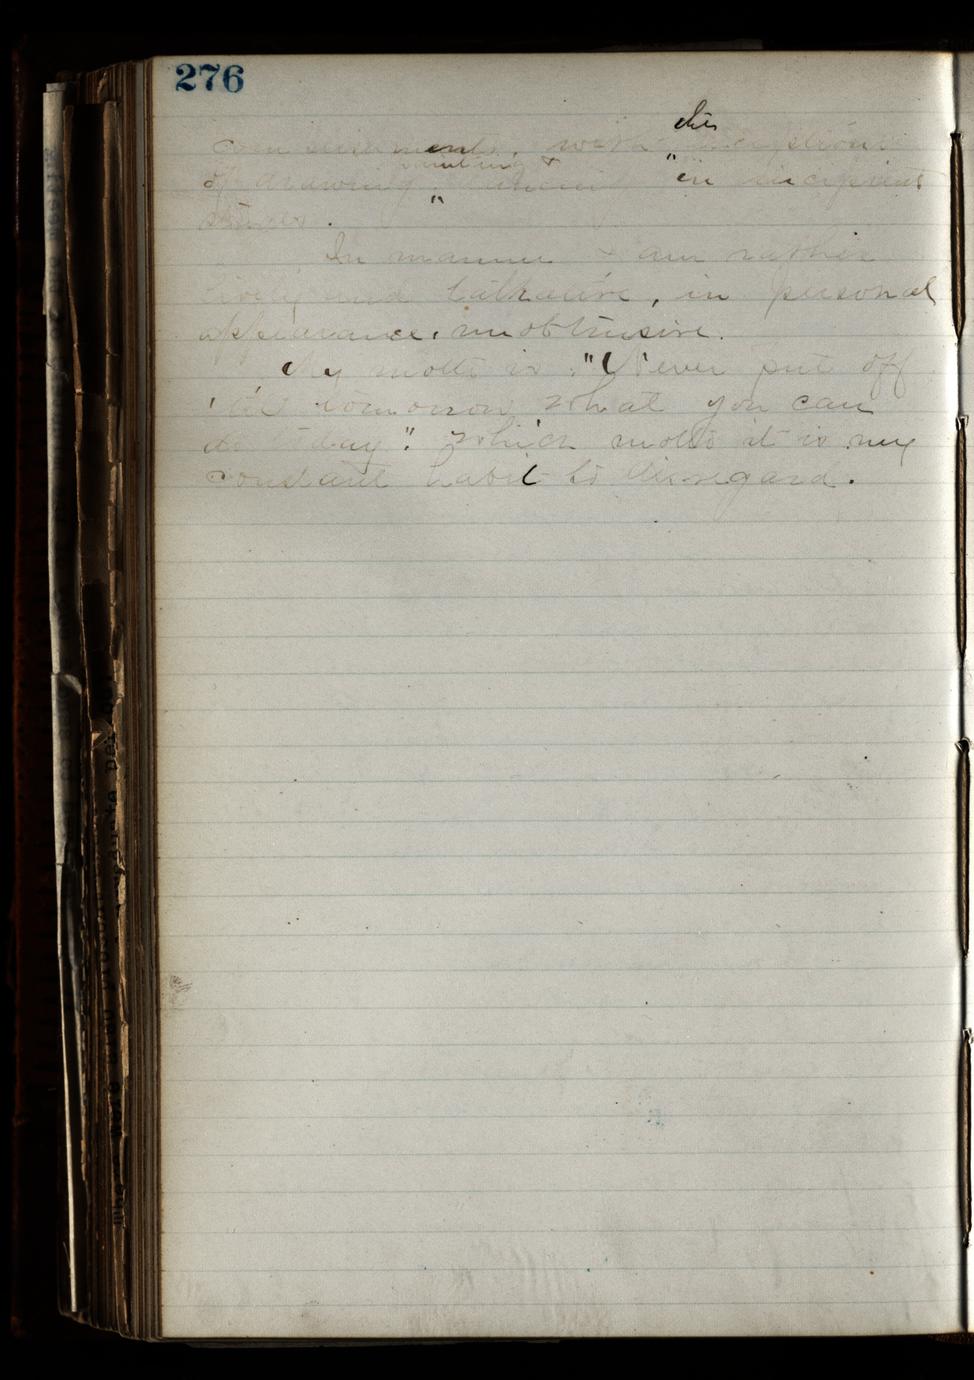 276
with
of drawing, painting & " in incipient
stages.
In manner I am rather
lively and talkative, in personal
appearance, unobtrusive.
My motto is: "Never put off
'till tomorrow what you can
do today": which motto it is my
constant habit to disregard.